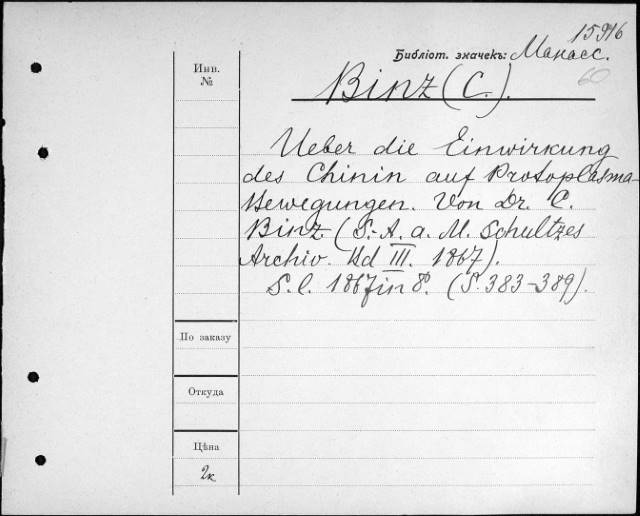 15916
Библіот. значекъ: Манасс.
60
Инв.
№
Binz (C.).
Ueber die Einwirkung
des Chinin auf Protoplasma-
Bewegungen. Von Dr. C.
Binz (S.-A. a. M. Schultzes
Archiv. Bd III. 1867).
S.l. 1867 in 8°. (S. 383-389).
По заказу
Откуда
Цѣна
2к